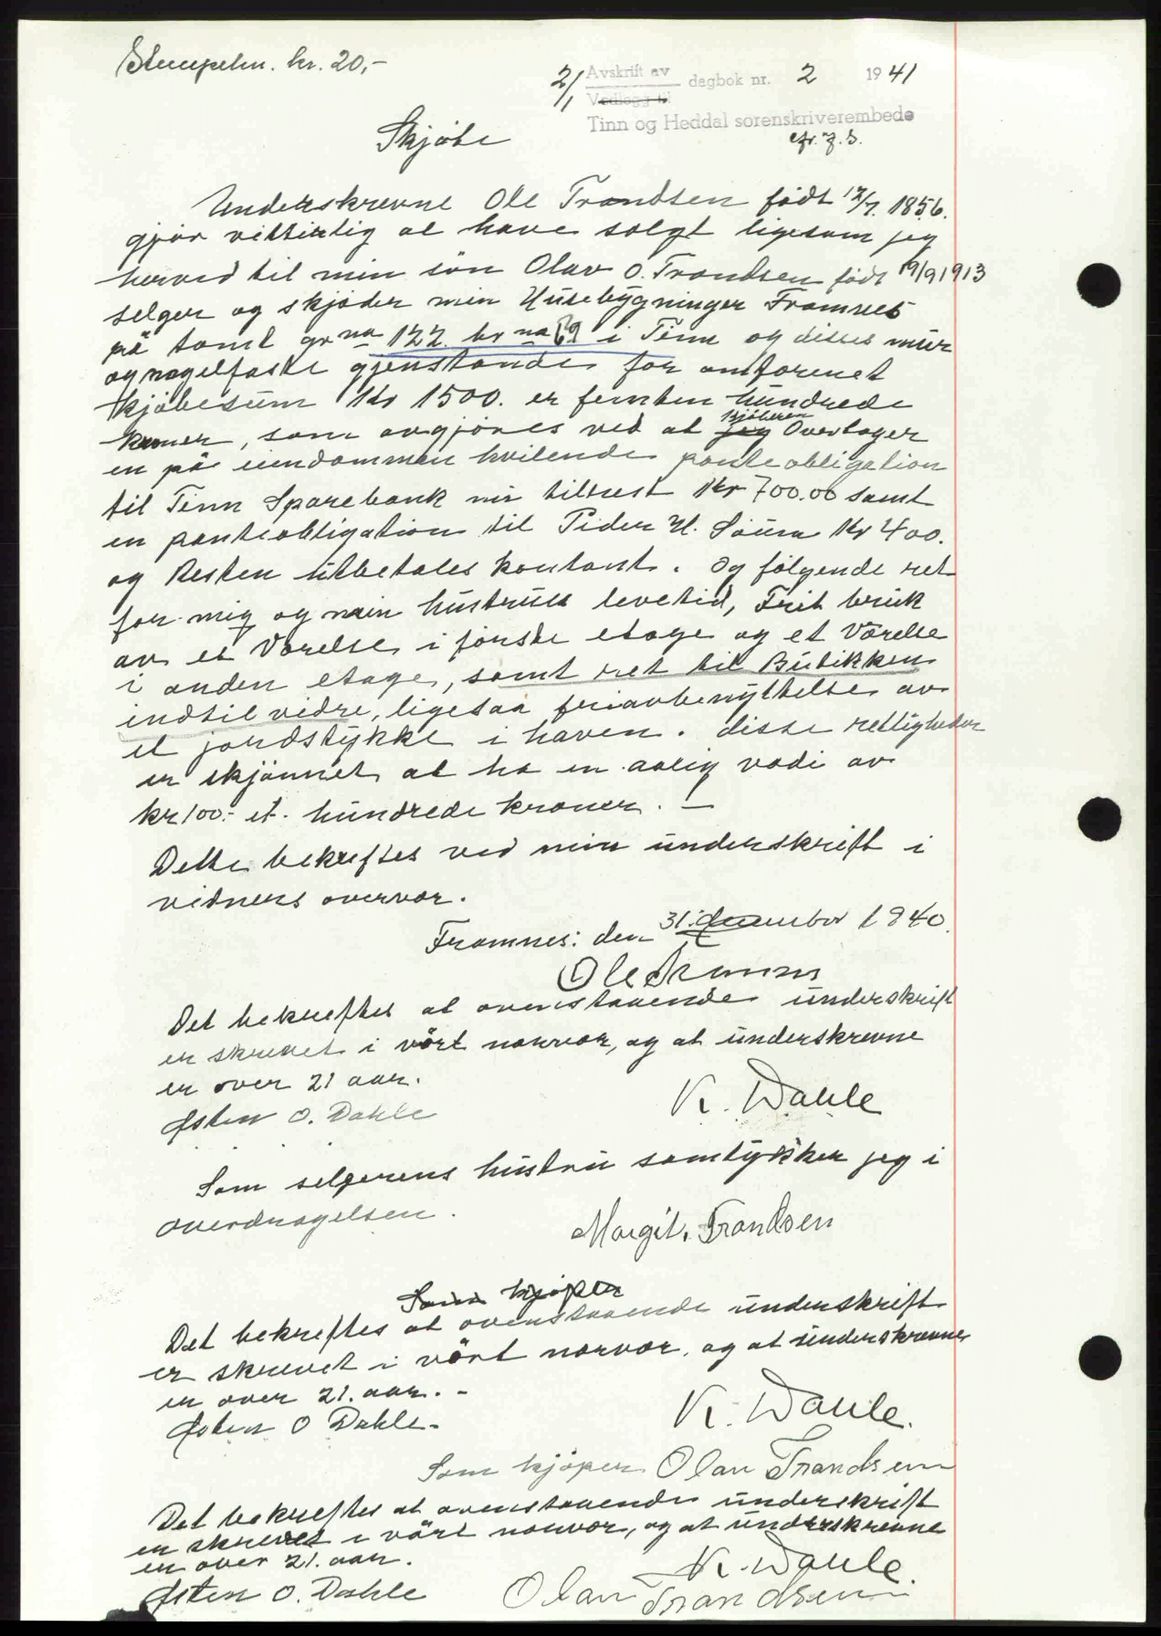 Stempelm. kr. 20,-
2/1 Avskrift av dagbok nr. 2 1941
Vedlegg til
Tinn og Heddal sorenskriverembede
cfr. f. s.
Skjøte
Underskrevne Ole Trondsen født 12/7. 1856.
gjør vitterlig at have solgt ligesom jeg
herved til min søn Olav O. Trondsen født 19/9 1913
selger og skjøder min Husebygninger Framnes
på tomt gr no 122. br no 69 i Tinn og disses mur
og nagelfaste gjenstande for omforenet
kjøbesum Kr 1500. er femten hundrede
kroner, som avgjøres ved at jeg kjøberen Overtager
en på eiendommen hvilende panteobligation
til Tinn Sparebank nu tilrest Kr 700.00 samt
en panteobligation til Peder H. Kr 400.
og Resten utbetales kontant. Og følgende ret
for mig og min hustrues levetid, Frit bruk
av et Værelse i første etage og et Værelse
i anden etage, samt ret til Butikken
indtil vedre, ligesaa friavbenyttelse av
et jordstykke i haven. disse rettigheder
er skjønnet at ha en aarlig vædi av
kr 100.- et. hundrede kroner. —
Dette bekreftes ved min underskrift i
vidners overvær.
Framnes: den 31. desember 1940.
Det bekreftes at ovenstaaende underskrift
er skrevet i vårt nærvær, og at underskrevne
er over 21 aar.
Østen O. Dahle K. Dahle
Som selgerens hustru samtykker jeg i
overdragelsen.
Margit. Trondsen
Som kjøper
Det bekreftes at ovenstaaende underskrift
er skrevet i vårt nærvær, og at underskrevne
er over 21. aar. -
Østen O Dahle. K. Dahle.
Som kjøper Olav Trondsen
Det bekreftes at ovenstaaende underskrift
er skrevet i vårt nærvær, og at underskrevne
er over 21. aar.
K. Dahle.
Østen O. Dahle Olav Trondsen